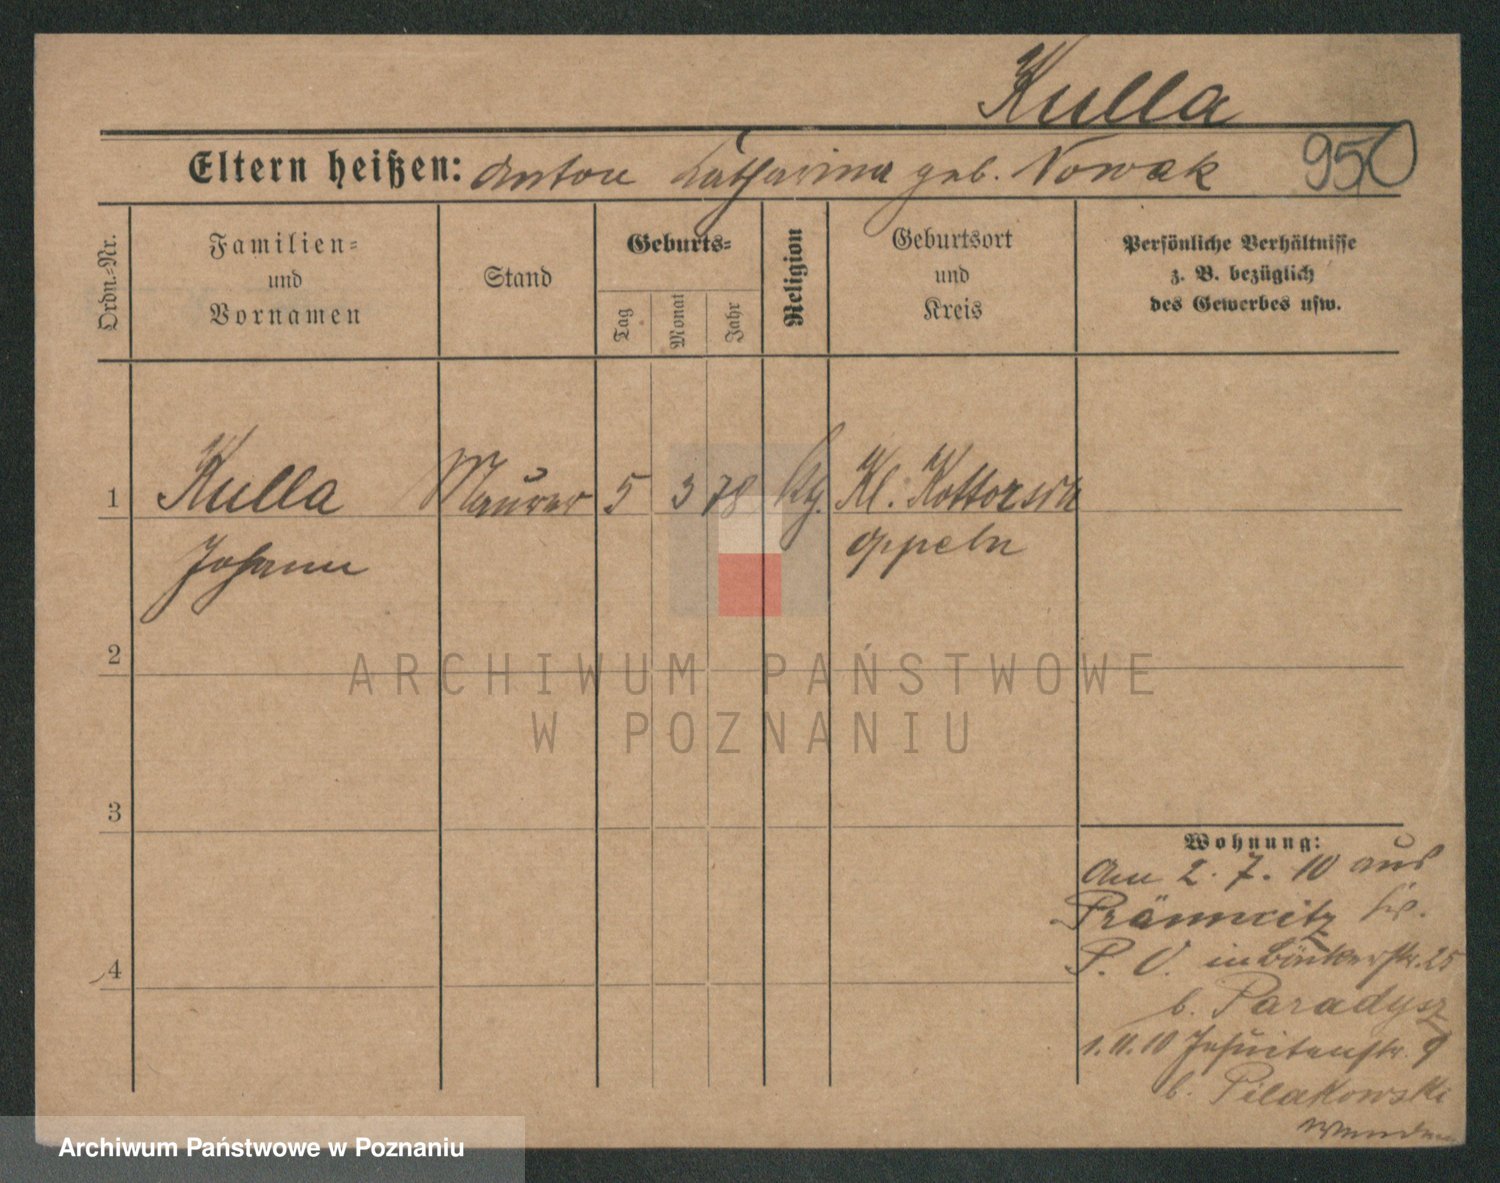 Kulla
Eltern heißen: Anton Katharina geb. Nowak 950
Ordn.-Nr.
Familien-
und
Vornamen
Stand
Geburts-
Tag
Monat
Jahr
Religion
Geburtsort
und
Kreis
Persönliche Verhältnisse
z. B. bezüglich
des Gewerbes usw.
1 Kulla Maurer 5 3 78 Kl. Kottorsch
Johann Oppeln
2
3
4
Wohnung:
Am 2. 7. 10 aus
P. V. in Bäckerstr. 25
b. Paradysz
1. 11. 10 Jesuitenstr. 9
b. Pilakowski
wenden
ARCHIWUM PAŃSTWOWE
W POZNANIU
Archiwum Państwowe w Poznaniu